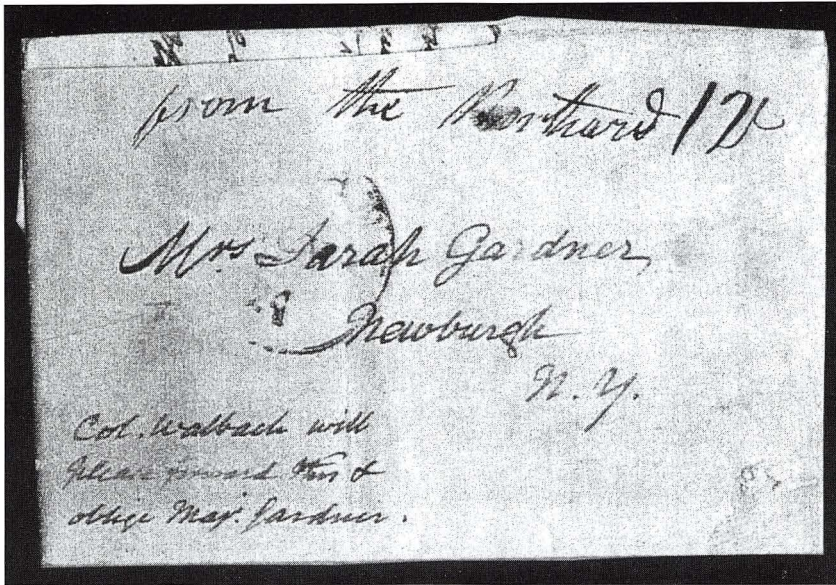 from the Northard 12
Mrs Sarah Gardner,
Newburgh
N. Y.
Col. Walbach will
please forward this &
oblige Maj. Gardner.